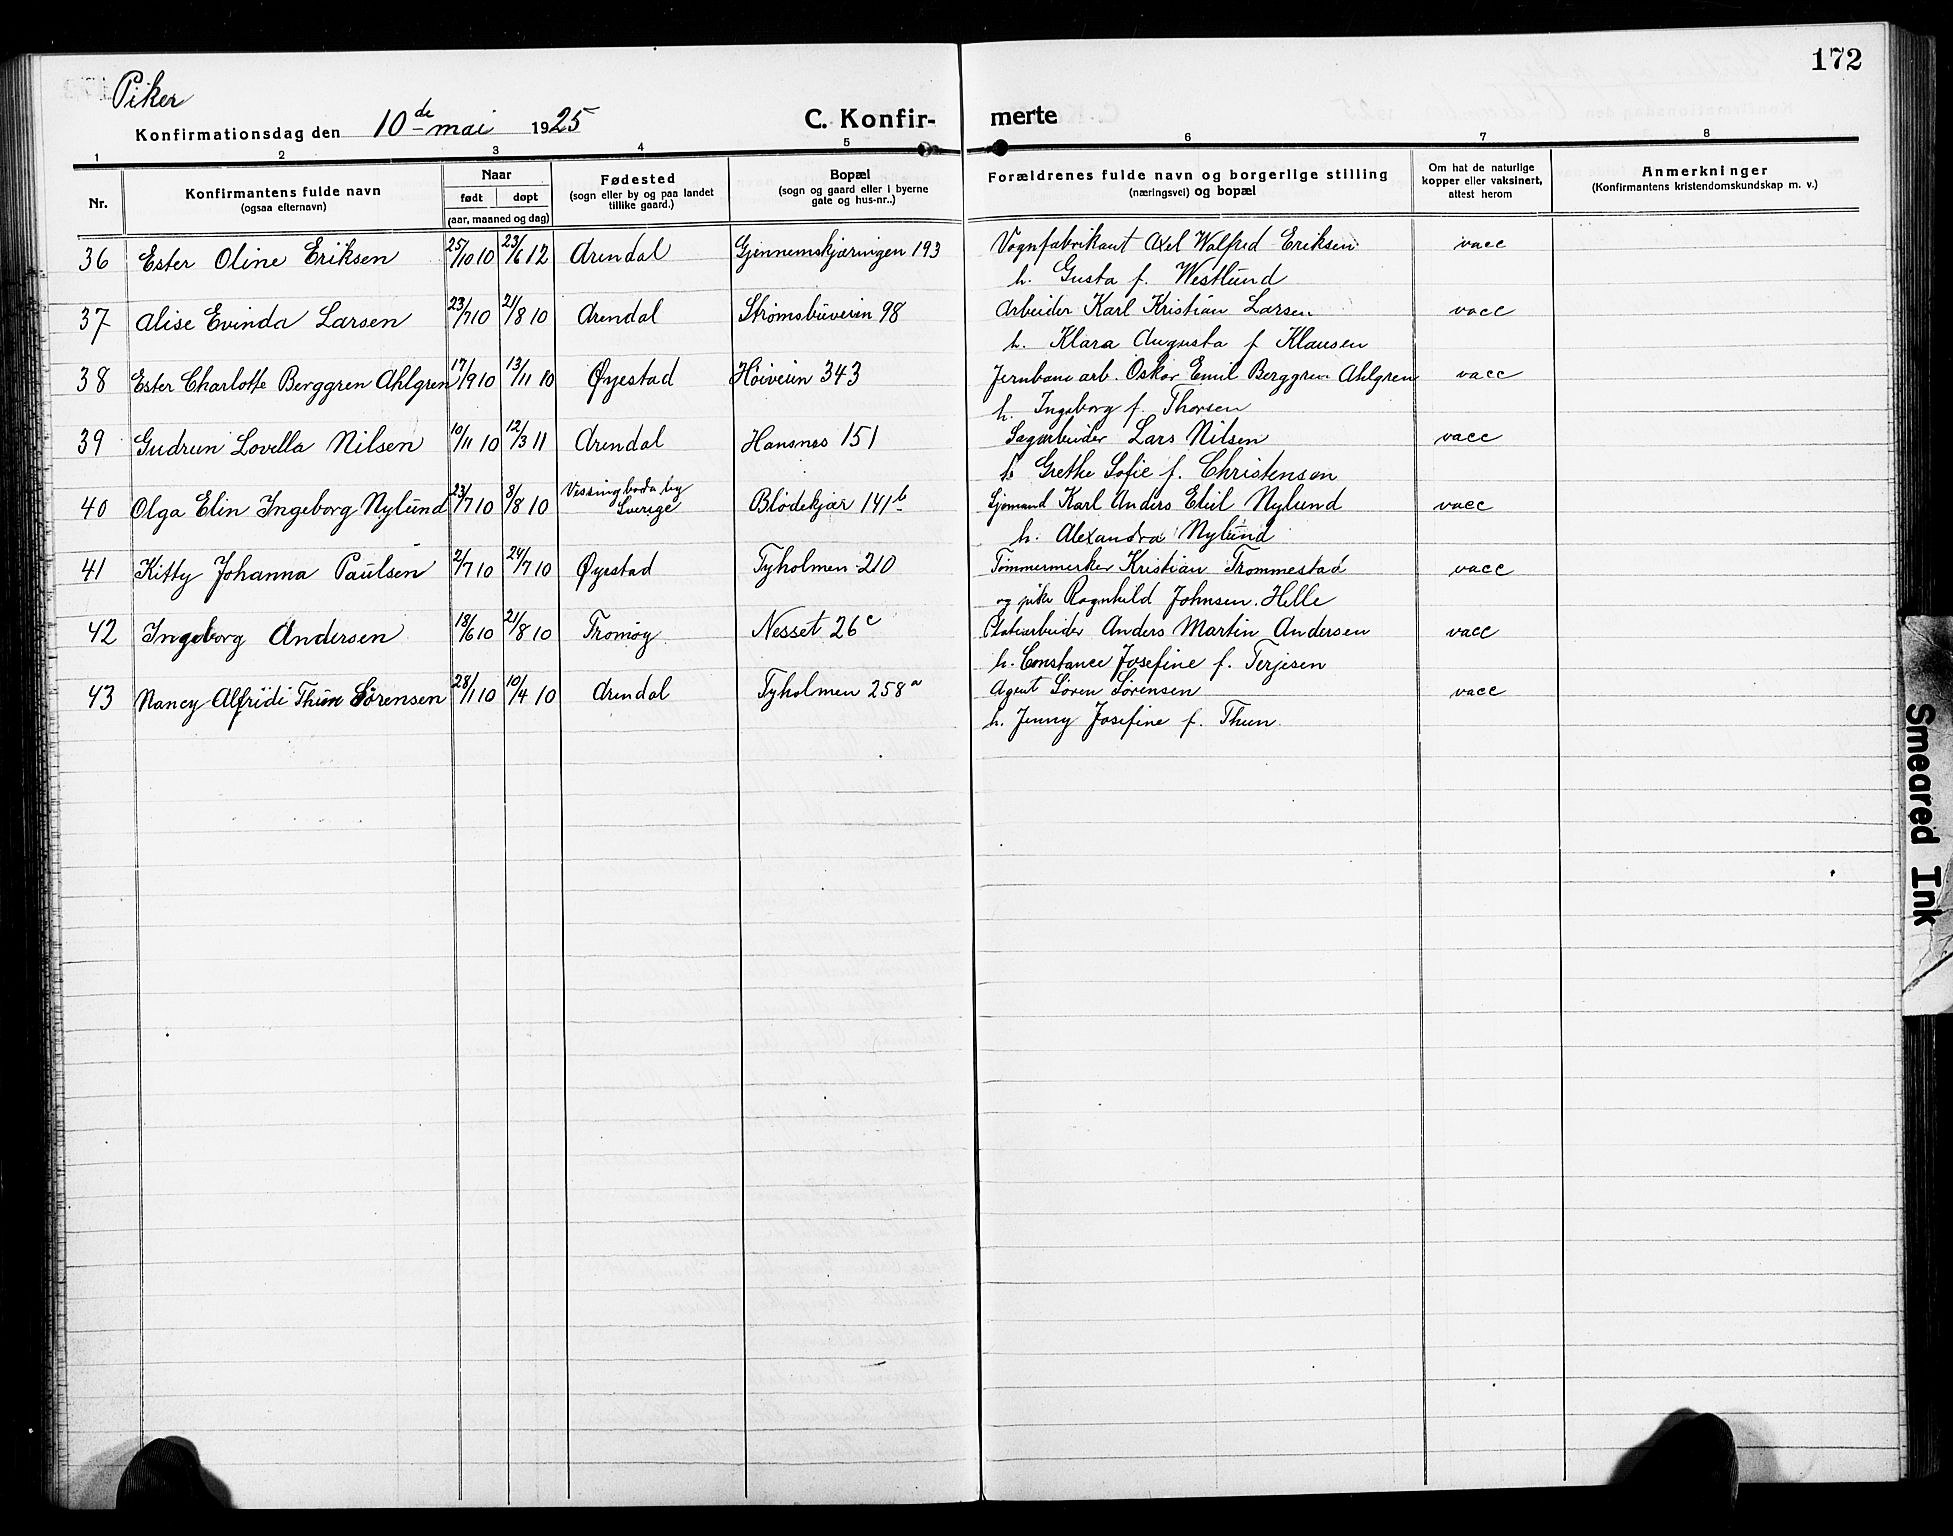 172
Piker
Konfirmationsdag den 10de mai 1925 C. Konfirmerte
1 2 3 4 5 6 7 8
Nr. Konfirmantens fulde navn (ogsaa efternavn) Naar født døpt (aar, maaned og dag) Fødested (sogn eller by og paa landet tillike gaard.) Bopæl (sogn og gaard eller i byerne gate og hus-nr..) Forældrenes fulde navn og borgerlige stilling (næringsvei) og bopæl Om hat de naturlige kopper eller vaksinert, attest herom Anmerkninger (Konfirmantens kristendomskundskap m. v.)
36 Ester Oline Eriksen 25/10 10 23/6 12 Arendal Gjennemskjæringen 193 Vognfabrikant Axel Walfred Eriksen vacc
h. Gusta f. Westlund
37 Alise Evinda Larsen 23/7 10 21/8 10 Arendal Strømsbuveien 98 Arbeider Karl Kristian Larsen vacc
h. Klara Augusta f Klausen
38 Ester Charlotte Berggren Ahlgren 17/9 10 13/11 10 Øyestad Høiveien 343 Jernbanearb. Oskar Emil Berggren Ahlgren vacc
h. Ingeborg f. Thorsen
39 Gudrun Lovella Nilsen 10/11 10 12/3 11 Arendal Hansnes 151 Sagarbeider Lars Nilsen vacc
h Grethe Sofie f. Christensen
40 Olga Elin Ingeborg Nylund 23/7 10 8/8 10 Vissingboda by Sverige Blødekjær 141b Sjømand Karl Anders Eliil Nylund vacc
h. Alexandra Nylund
41 Kitty Johanna Paulsen 2/7 10 24/7 10 Øyestad Tyholmen 210 Tømmermerker Kristian Trommestad vacc
og pike Ragnhild Johnsen. Helle
42 Ingeborg Andersen 18/6 10 21/8 10 Tromøy Nesset 26c Platearbeider Anders Martin Andersen vacc
h. Constance Josefine f. Terjesen
43 Nancy Alfridi Thun Sørensen 28/1 10 10/4 10 Arendal Tyholmen 258a Agent Søren Sørensen vacc
h. Jenny Josefine f. Thun.
Smeared Ink